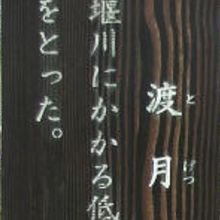 渡月
とげつ
堰川にかかる低
をとった。